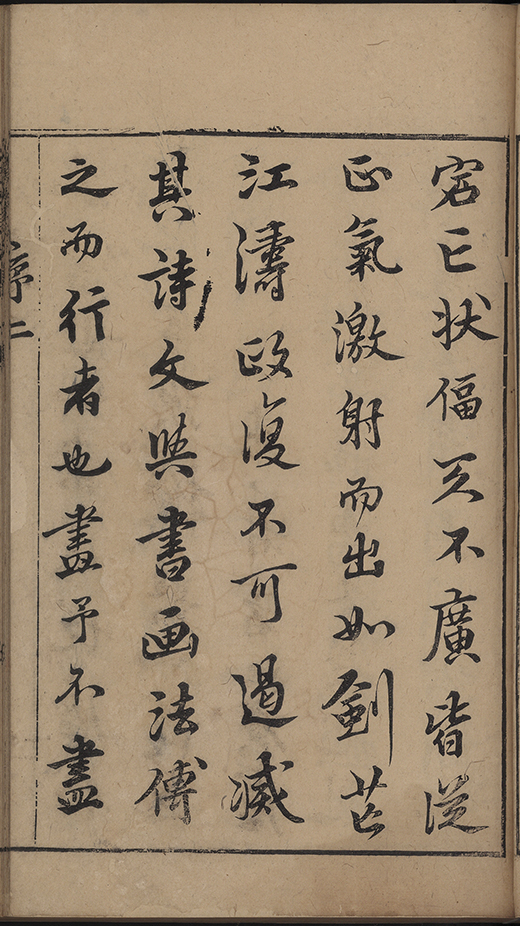 状偪不廣皆從
正氣激射而出如劍芒
江濤政復不可遏滅
其詩文與書画法傅
之而行者也盡予不盡
序二